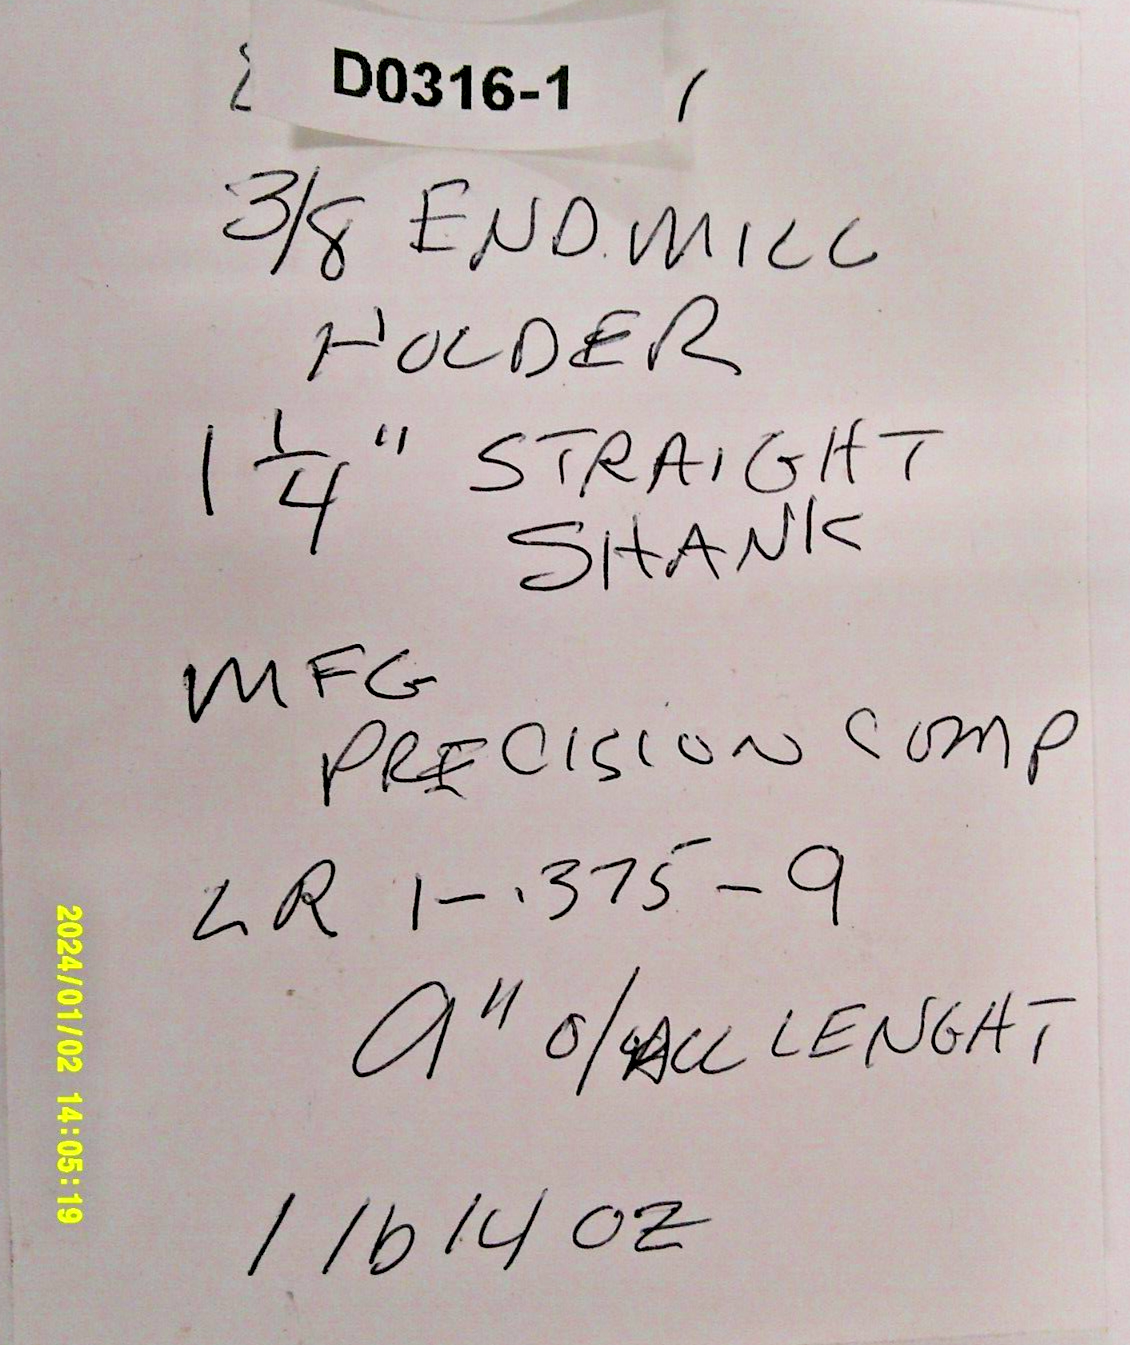 D0316-1
3/8 END.MILL
HOLDER
1 1/4" STRAIGHT
SHANK
MFG
PRECISION COMP
LR 1-.375-9
9" O/ALL LENGHT
1 lb 14 oz
2024/01/02 14:05:19